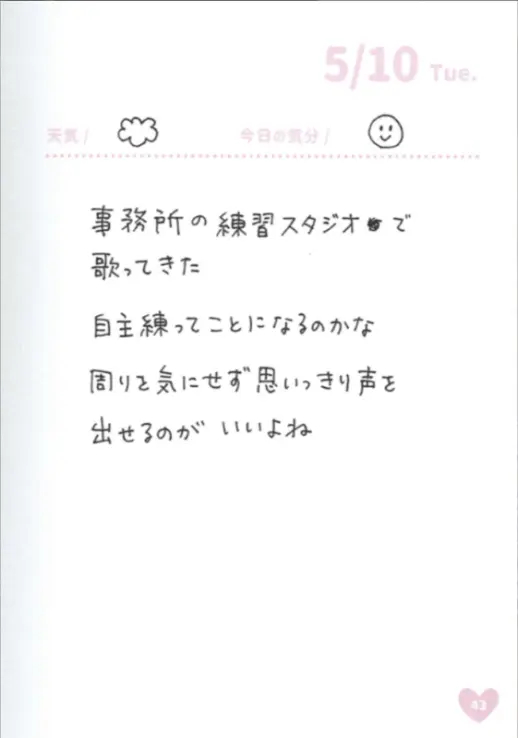 5/10 Tue.
天気/ 今日の気分/
事務所の練習スタジオで
歌ってきた
自主練ってことになるのかな
周りを気にせず思いっきり声を
出せるのが いいよね
43